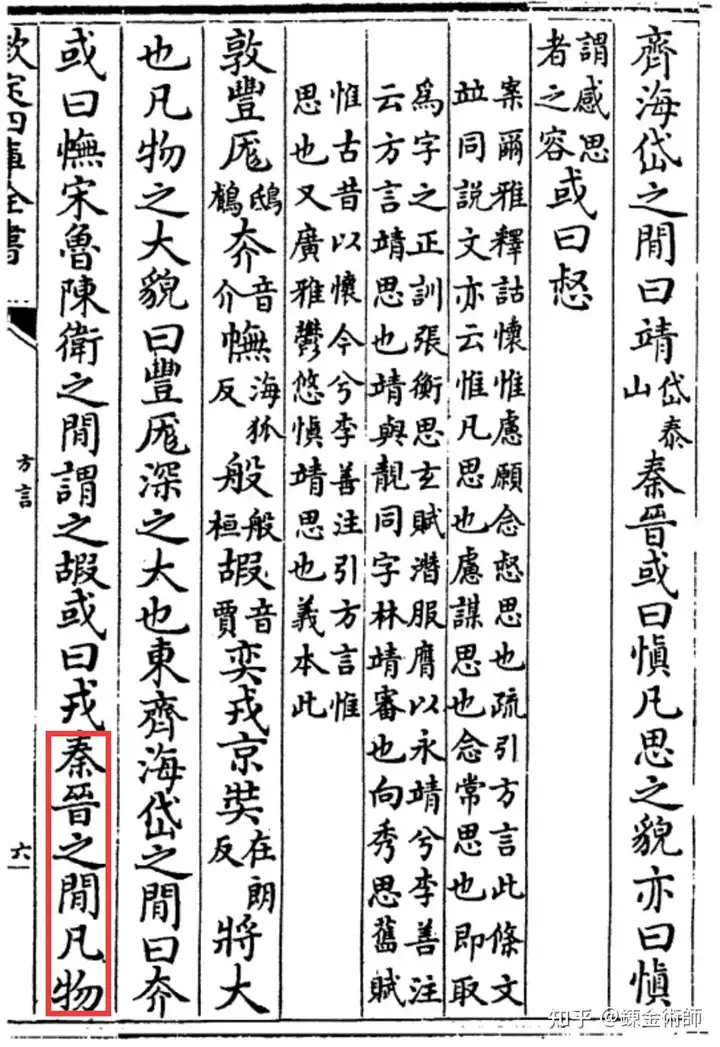 齊海岱之閒曰靖岱泰山秦晉或曰愼凡思之貌亦曰愼
謂感思者之容或曰惄
案爾雅釋詁懷惟慮願念惄思也疏引方言此條文
竝同說文亦云惟凡思也慮謀思也念常思也即取
爲字之正訓張衡思玄賦潛服膺以永靖兮李善注
云方言靖思也靖與靚同字林靖審也向秀思舊賦
惟古昔以懷今兮李善注引方言惟
思也又廣雅鬱悠愼靖思也義本此
敦豐厖鴟夰音介幠海狐反般般桓嘏音賈奕戎京奘在朗反將大
也凡物之大貌曰豐厖深之大也東齊海岱之閒曰夰
或曰幠宋魯陳衛之閒謂之嘏或曰戎秦晉之閒凡物
欽定四庫全書
方言
六
知乎 @鍊金術師